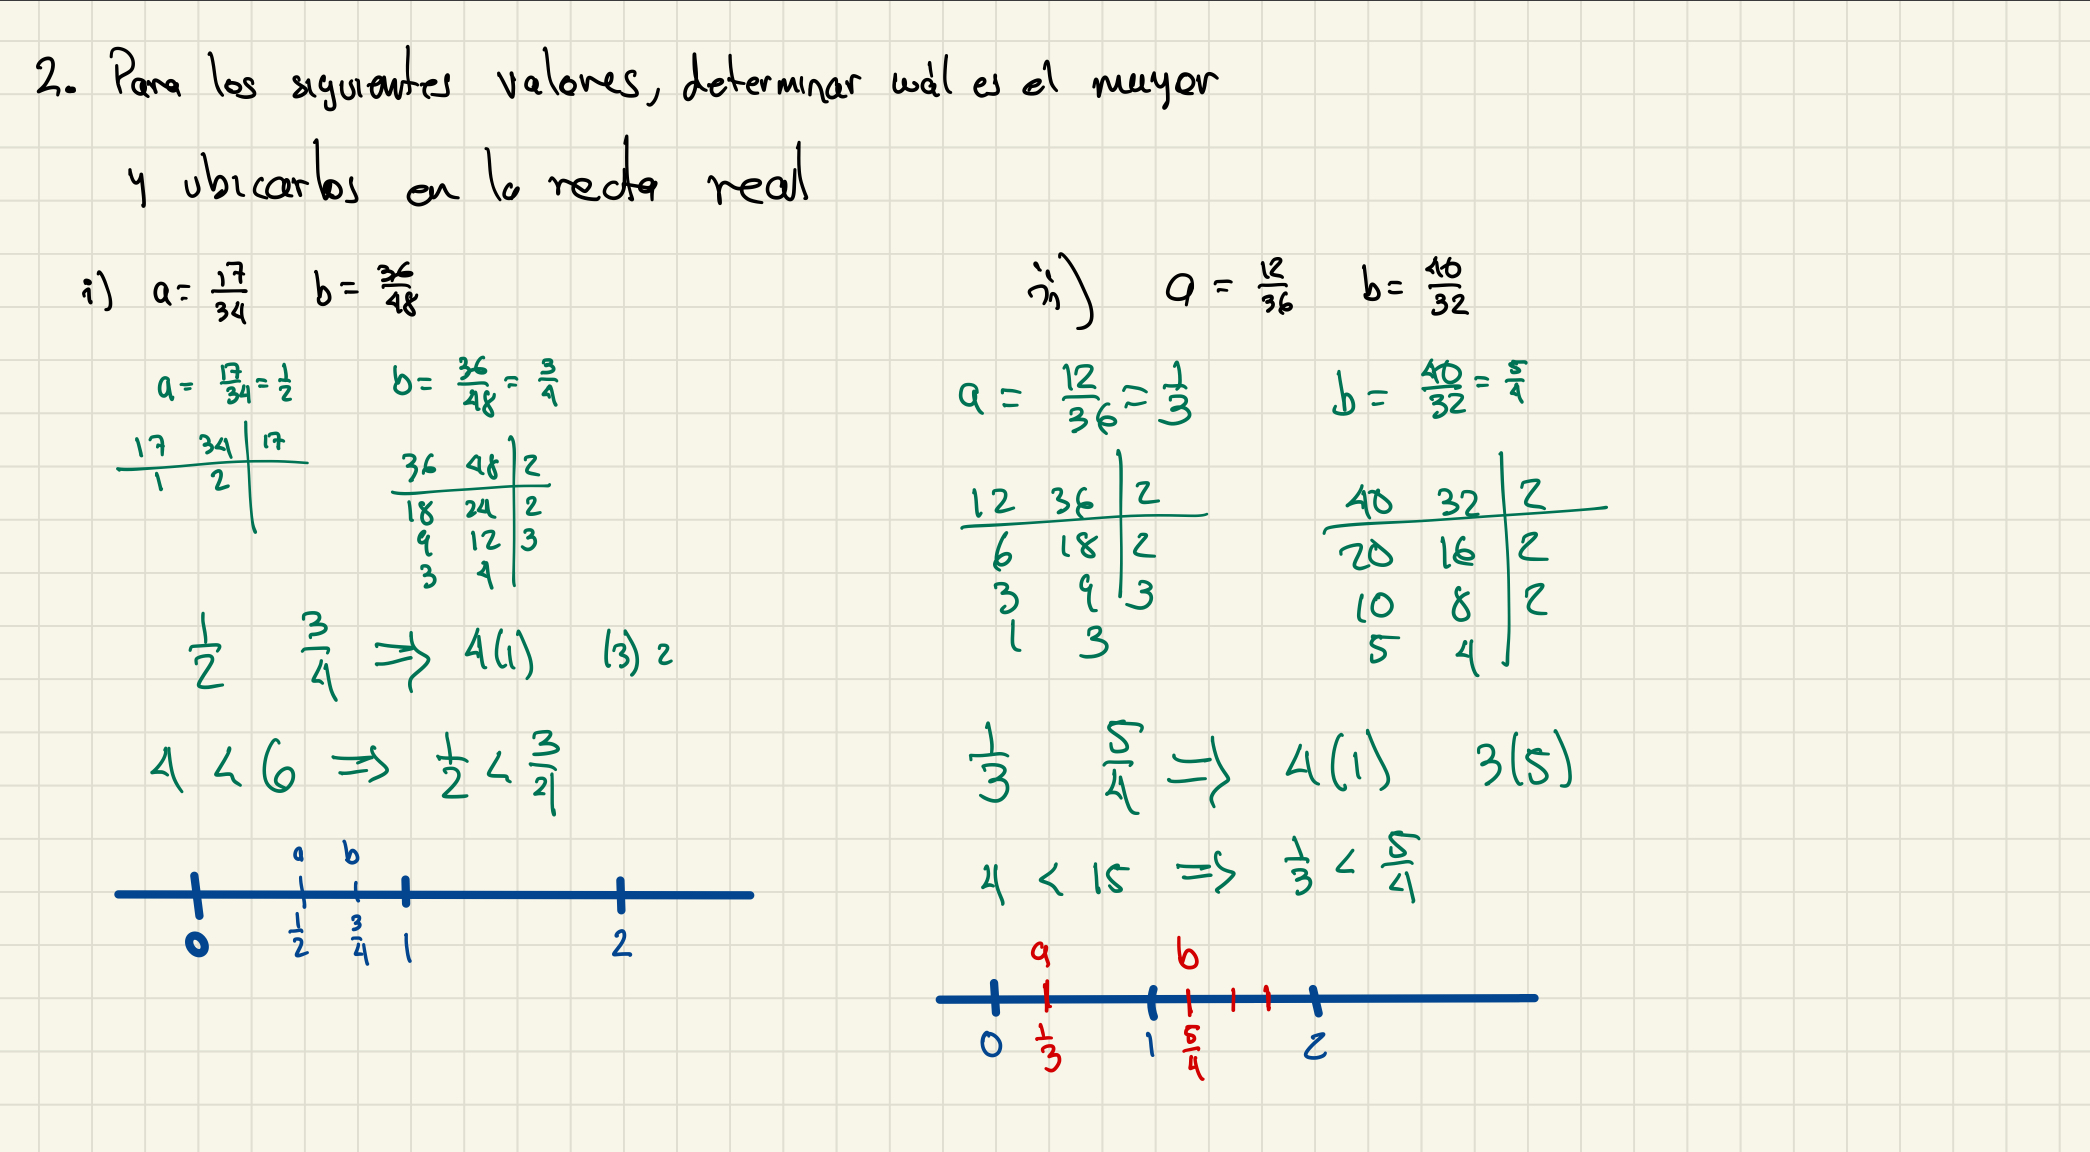 2. Para los siguientes valores, determinar cuál es el mayor
y ubicarlos en la recta real
i) a = 17/34 b = 36/48
a = 17/34 = 1/2 b = 36/48 = 3/4
17 34 | 17
1 2
36 48 | 2
18 24 | 2
9 12 | 3
3 4
1/2 3/4 ⇒ 4(1) (3)2
4 < 6 ⇒ 1/2 < 3/4
a b
0 1/2 3/4 1 2
ii) a = 12/36 b = 40/32
a = 12/36 = 1/3 b = 40/32 = 5/4
12 36 | 2
6 18 | 2
3 9 | 3
1 3
40 32 | 2
20 16 | 2
10 8 | 2
5 4
1/3 5/4 ⇒ 4(1) 3(5)
4 < 15 ⇒ 1/3 < 5/4
a b
0 1/3 1 5/4 2